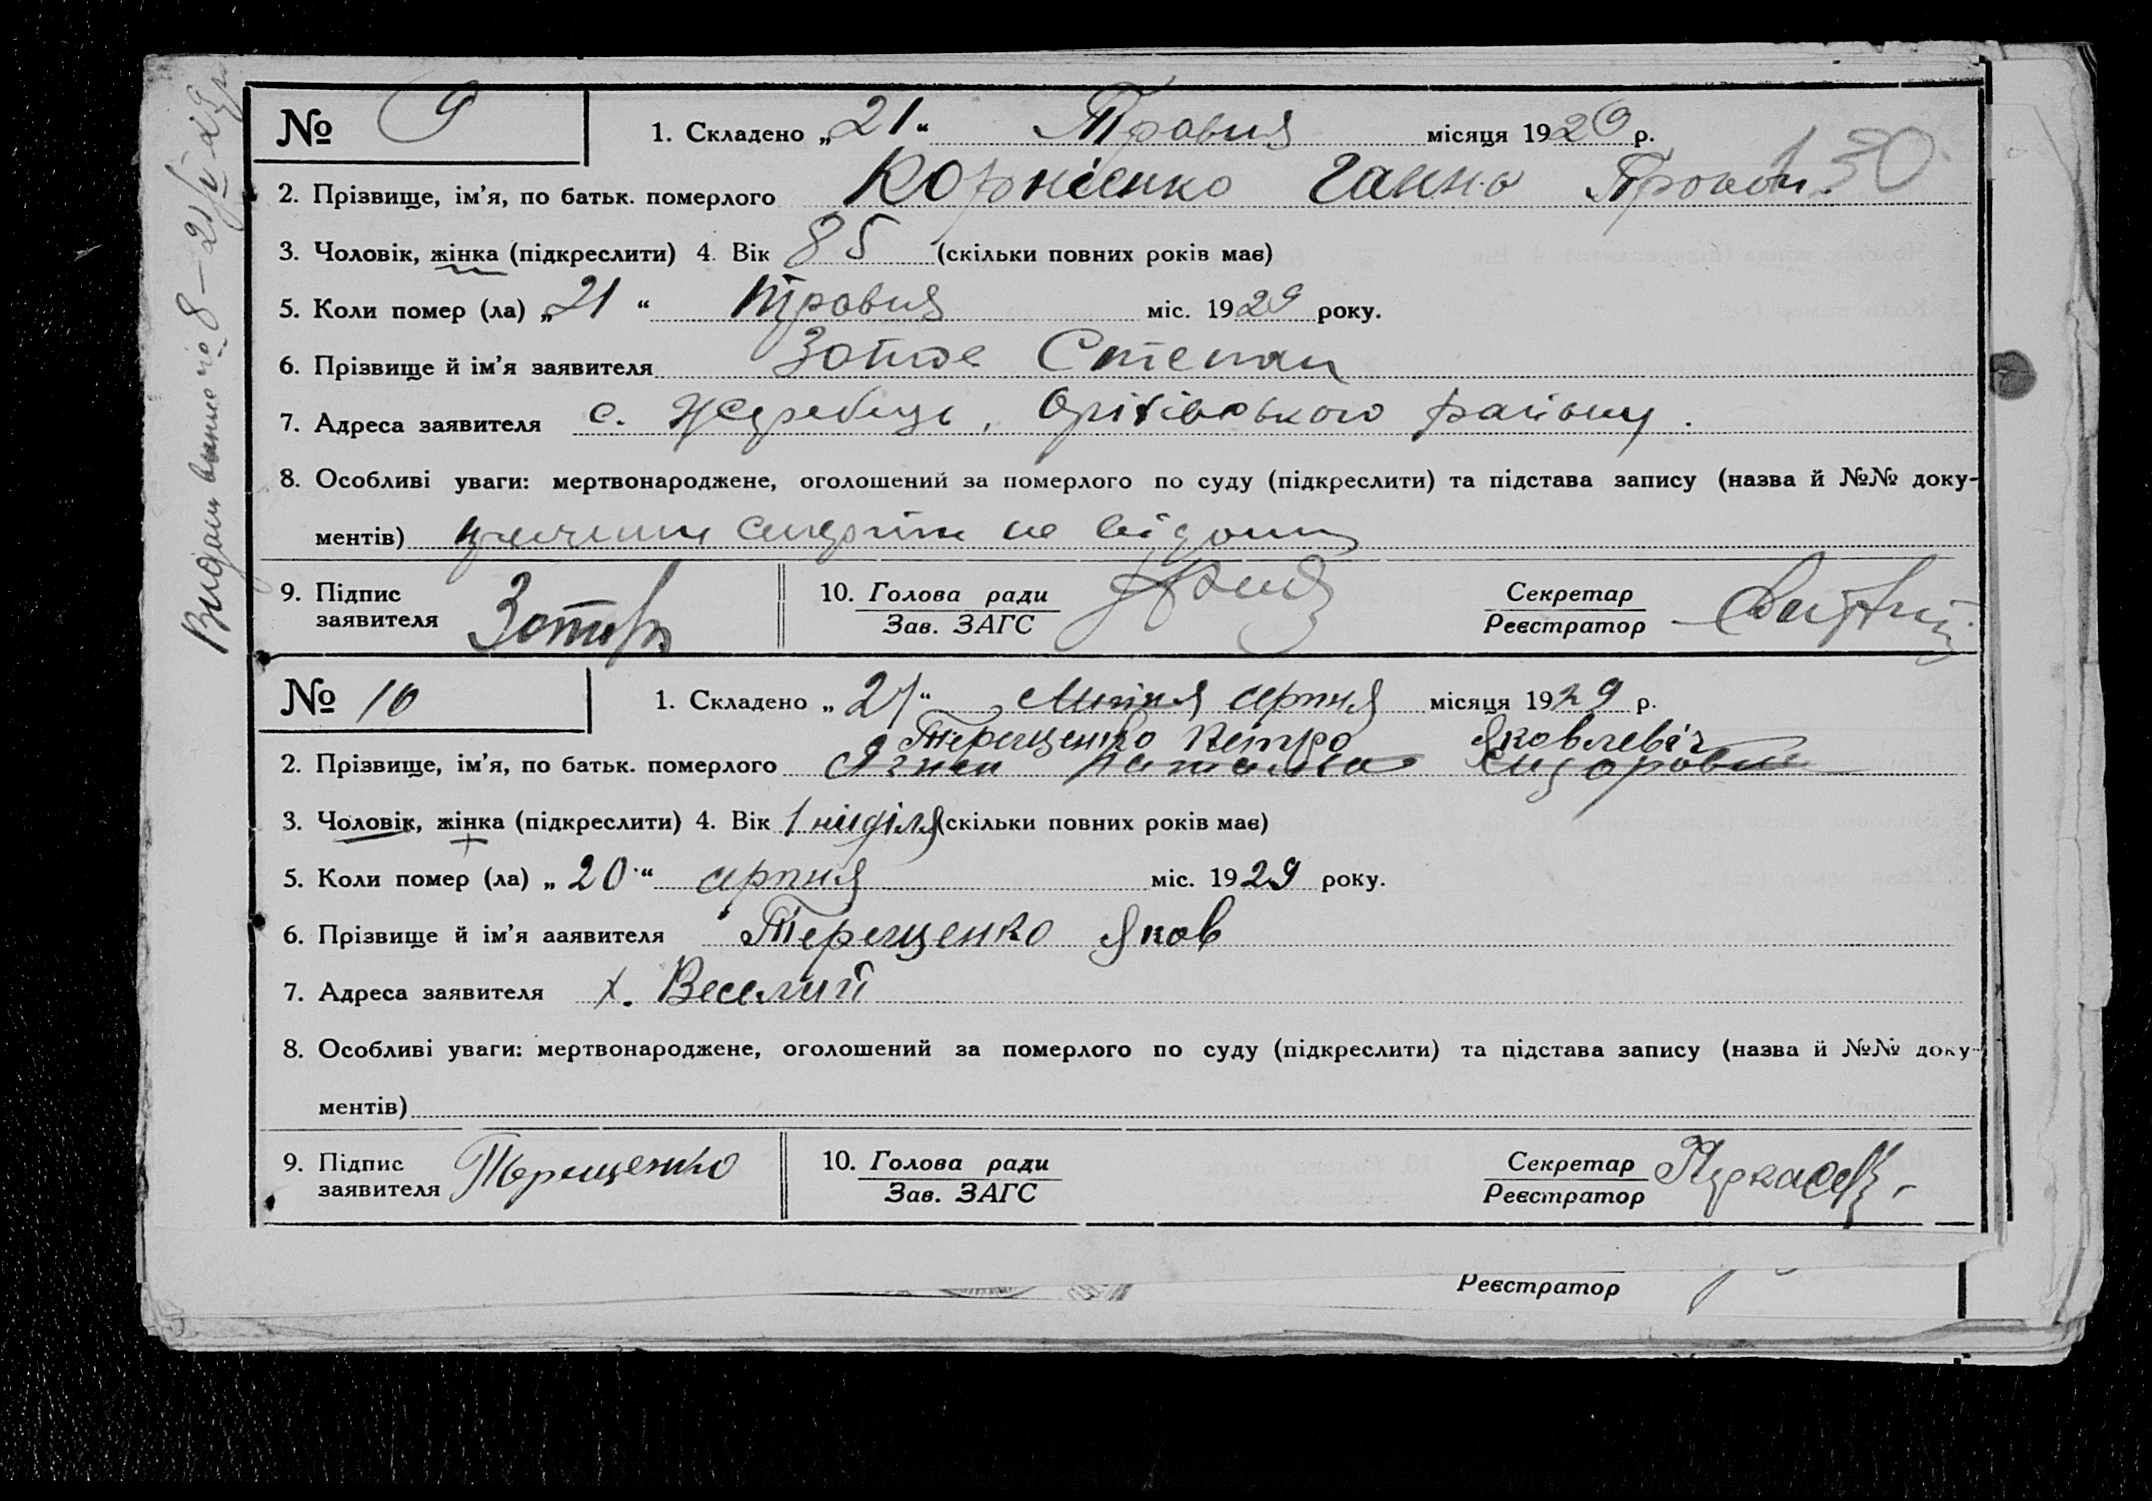 № 9 1. Складено „21“ Травня місяця 1929 р.
130
2. Прізвище, ім’я, по батьк. померлого Корнієнко Ганна Прокоп.
3. Чоловік, жінка (підкреслити) 4. Вік 85 (скільки повних років має)
5. Коли помер (ла) „21“ травня міс. 1929 року.
6. Прізвище й ім’я заявителя Степан
7. Адреса заявителя с. Жеребець, Оріхівського району.
8. Особливі уваги: мертвонароджене, оголошений за померлого по суду (підкреслити) та підстава запису (назва й №№ доку-
ментів) причини смерти не відомі
9. Підпис 10. Голова ради Секретар
заявителя Зав. ЗАГС Реєстратор
№ 10 1. Складено „21“ Липня серпня місяця 1929 р.
Терещенко Петро Яковлевіч
2. Прізвище, ім’я, по батьк. померлого Наталка Сидоровна
3. Чоловік, жінка (підкреслити) 4. Вік 1 ниділя (скільки повних років має)
5. Коли помер (ла) „20“ серпня міс. 1929 року.
6. Прізвище й ім’я ааявителя Терещенко Яков
7. Адреса заявителя х. Веселий
8. Особливі уваги: мертвонароджене, оголошений за померлого по суду (підкреслити) та підстава запису (назва й №№ доку-
ментів)
9. Підпис 10. Голова ради Секретар
заявителя Терещенко Зав. ЗАГС Реєстратор
Реєстратор